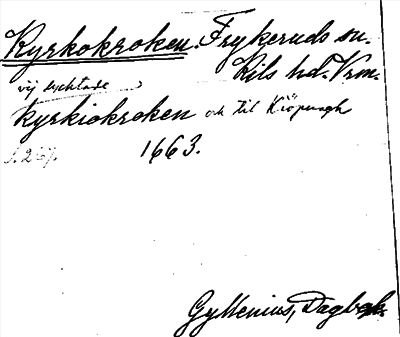 Kyrkokroken. Frykeruds sn.
Kils hd. Vrm.
vij lychtade
Kyrkiokroken och til Kiöpungh
1663.
Gyllenius, Dagbok.